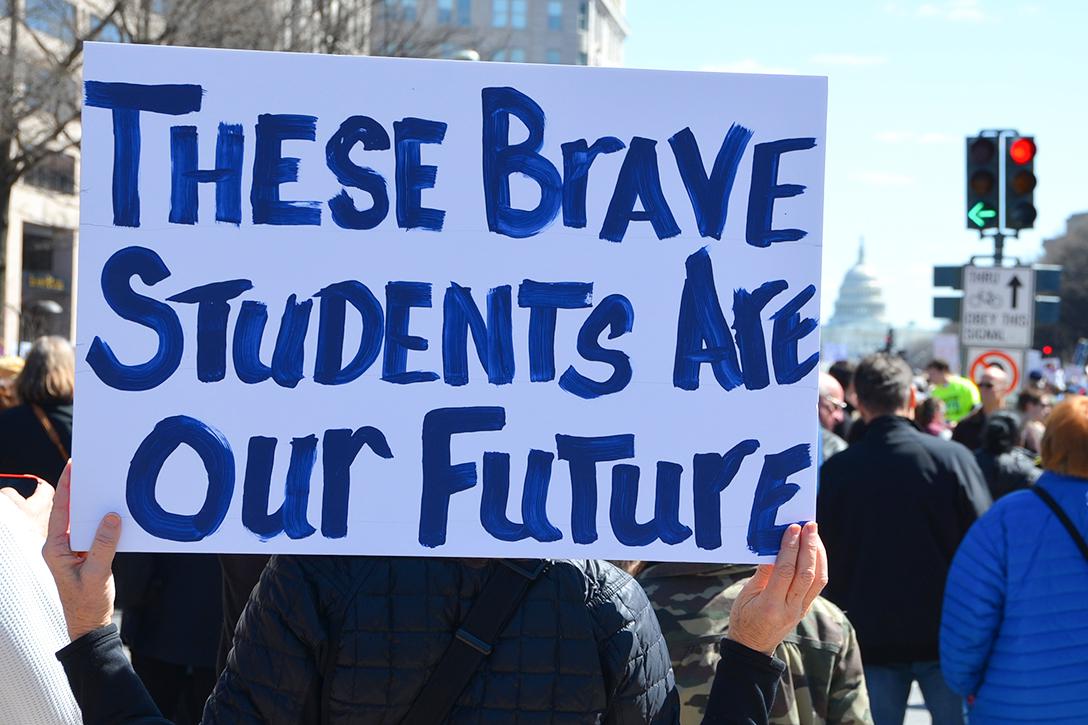 These Brave
Students Are
Our Future
THRU
OBEY THIS
SIGNAL